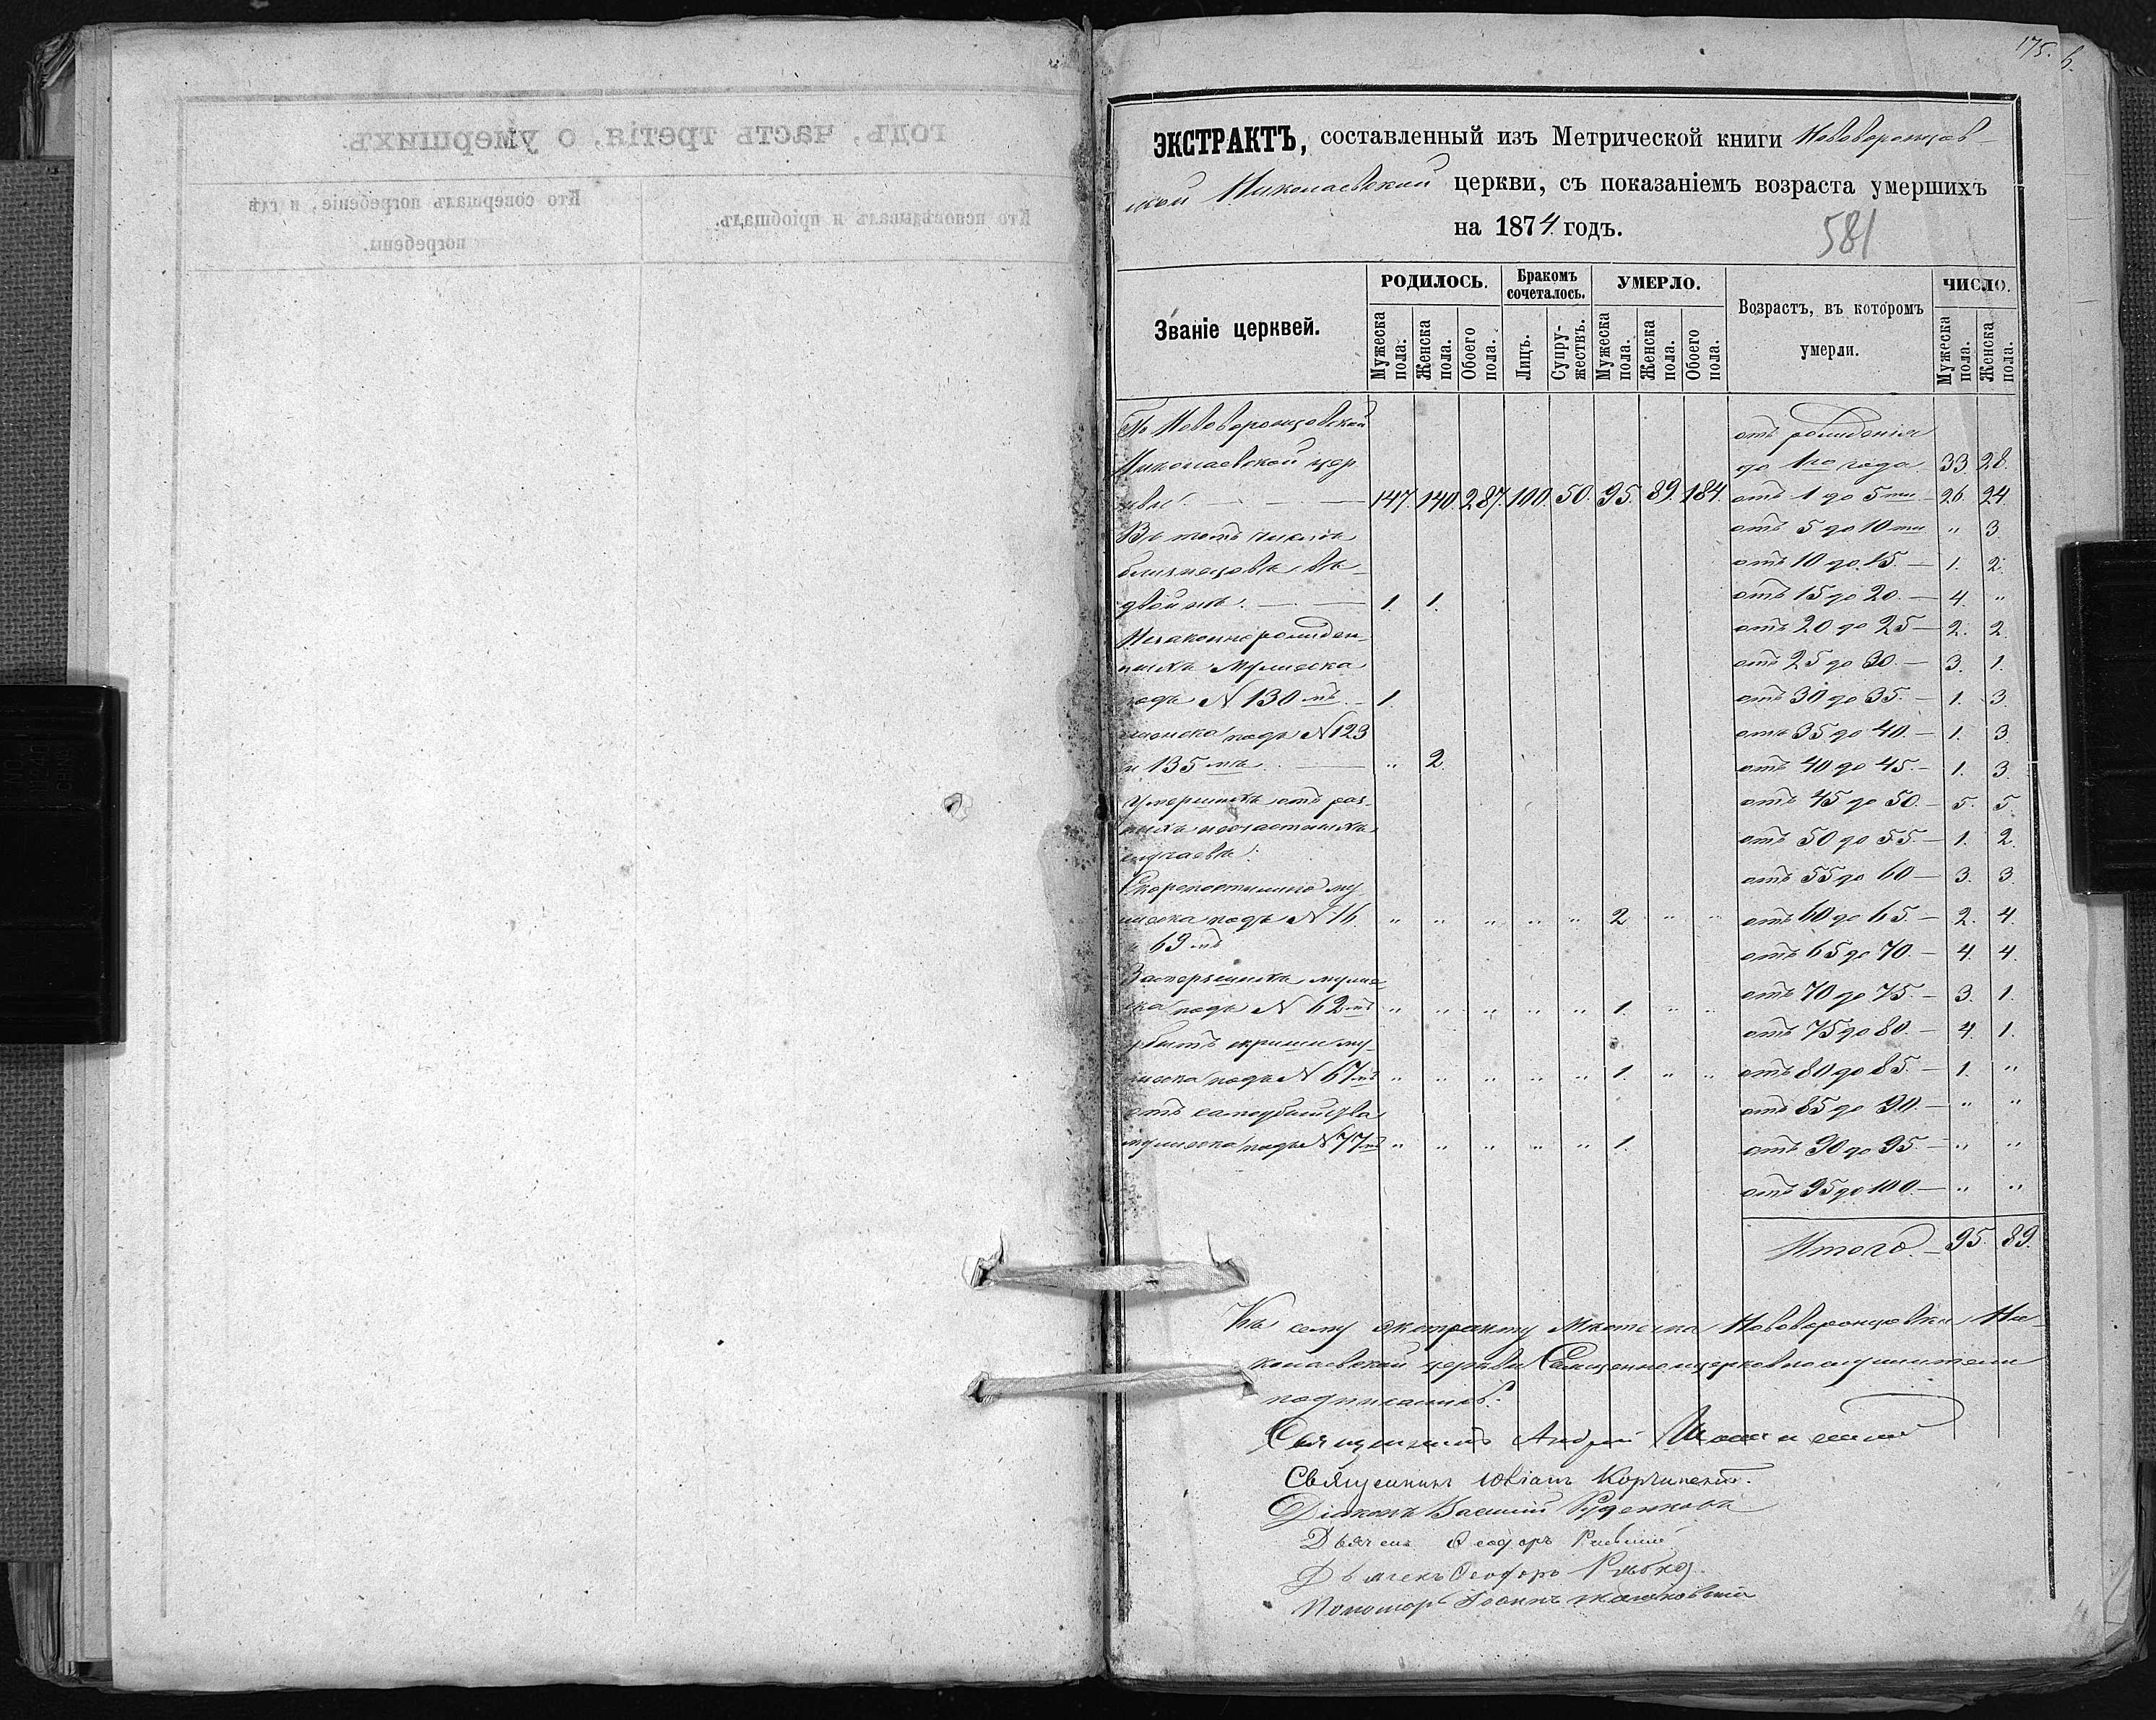 175.
годъ, часть третія, о умершихъ.
Кто исповѣдывалъ и пріобщалъ.
Кто совершалъ погребеніе, и гдѣ
погребены.
ЭКСТРАКТЪ, составленный изъ Метрической книги Нововоронцов-
ской Николаевской церкви, съ показаніемъ возраста умершихъ
на 1874 годъ.
581
Званіе церквей.
РОДИЛОСЬ.
Бракомъ сочеталось.
УМЕРЛО.
Возрастъ, въ которомъ
умерли.
ЧИСЛО.
Мужеска пола.
Женска пола.
Обоего пола.
Лицъ.
Супружествъ.
Мужеска пола.
Женска пола.
Обоего пола.
Мужеска пола.
Женска пола.
Въ Нововоронцовской
Николаевской цер
кви 147. 140. 287. 100. 50. 95. 89. 184.
Въ томъ числѣ
близнецовъ въ
двойнѣ. 1. 1.
Незаконнорожден-
ныхъ мужеска
подъ N 130 мъ 1.
женска подъ N 123
и 135 мъ " 2.
Умершихъ отъ раз-
ныхъ несчастныхъ
случаевъ:
Скоропостижно му
жеска подъ N 16. " " " " " 2 " "
и 69 мъ
Замерзшихъ муже
ска подъ N 62 мъ " " " " " 1. " "
жеска подъ N 67 мъ " " " " " 1. " "
отъ самоубийства
мужеска подъ N 77 мъ " " " " " 1.
отъ рожденія
до 1го года 33. 28.
отъ 1 до 5ти 26. 24.
отъ 5 до 10ти " 3.
отъ 10 до 15. — 1. 2.
отъ 15 до 20. — 4. "
отъ 20 до 25 — 2. 2.
отъ 25 до 30. — 3. 1.
отъ 30 до 35. — 1. 3.
отъ 35 до 40. — 1. 3.
отъ 40 до 45. — 1. 3.
отъ 45 до 50. — 5. 5.
отъ 50 до 55. — 1. 2.
отъ 55 до 60 — 3. 3.
отъ 60 до 65. — 2. 4.
отъ 65 до 70. — 4. 4.
отъ 70 до 75. — 3. 1.
отъ 75 до 80. — 4. 1.
отъ 80 до 85. — 1. "
отъ 85 до 90. — " "
отъ 90 до 95. — " "
отъ 95 до 100. — " "
Итого — 95. 89.
Къ сему экстракту Мѣстечка Нововоронцовки Ни-
колаевской церкви Священноцерковнослужители
подписались:
Священникъ Андрей
Священникъ Юліанъ Корчинскій.
Діаконъ Василий Руденковъ
Дьячекъ Ѳеодоръ
Дьячекъ Ѳеодоръ
Пономарь Іоаннъ